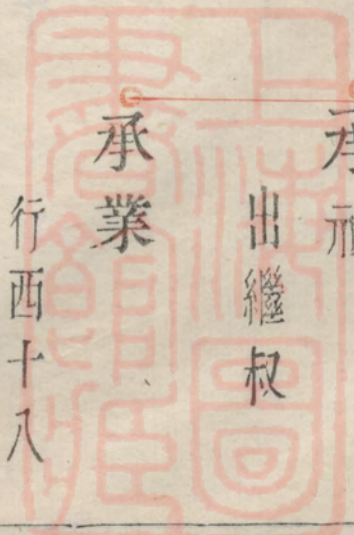 承
出繼叔
承業
行西十八